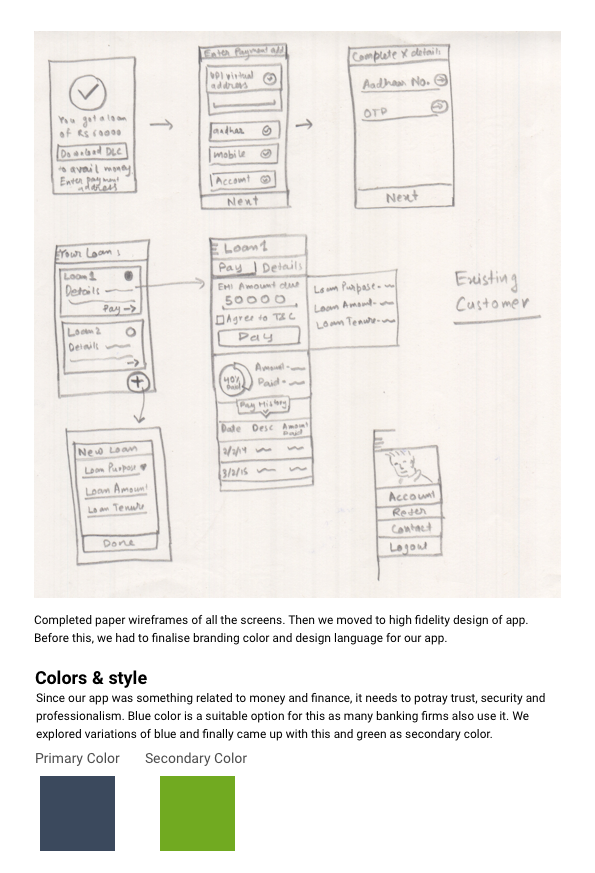 You got a loan
of Rs 60000
Download DLC
to avail money
Enter payment
address
Enter Payment add
UPI virtual
address
aadhar
mobile
Account
Next
Complete X details
Aadhar No.
OTP
Next
Your Loan :
Loan1
Details
Pay →
Loan2
Details
→
+
New Loan
Loan Purpose
Loan Amount
Loan Tenure
Done
Loan1
Pay Details
EMI Amount due
50000
Agree to T&C
Pay
40%
Paid
Amount -
Paid -
Pay History
Date Desc Amount
Paid
2/2/14
3/2/15
Loan Purpose -
Loan Amount -
Loan Tenure -
Existing
Customer
Account
Refer
Contact
Logout
Completed paper wireframes of all the screens. Then we moved to high fidelity design of app.
Before this, we had to finalise branding color and design language for our app.
Colors & style
Since our app was something related to money and finance, it needs to potray trust, security and
professionalism. Blue color is a suitable option for this as many banking firms also use it. We
explored variations of blue and finally came up with this and green as secondary color.
Primary Color Secondary Color